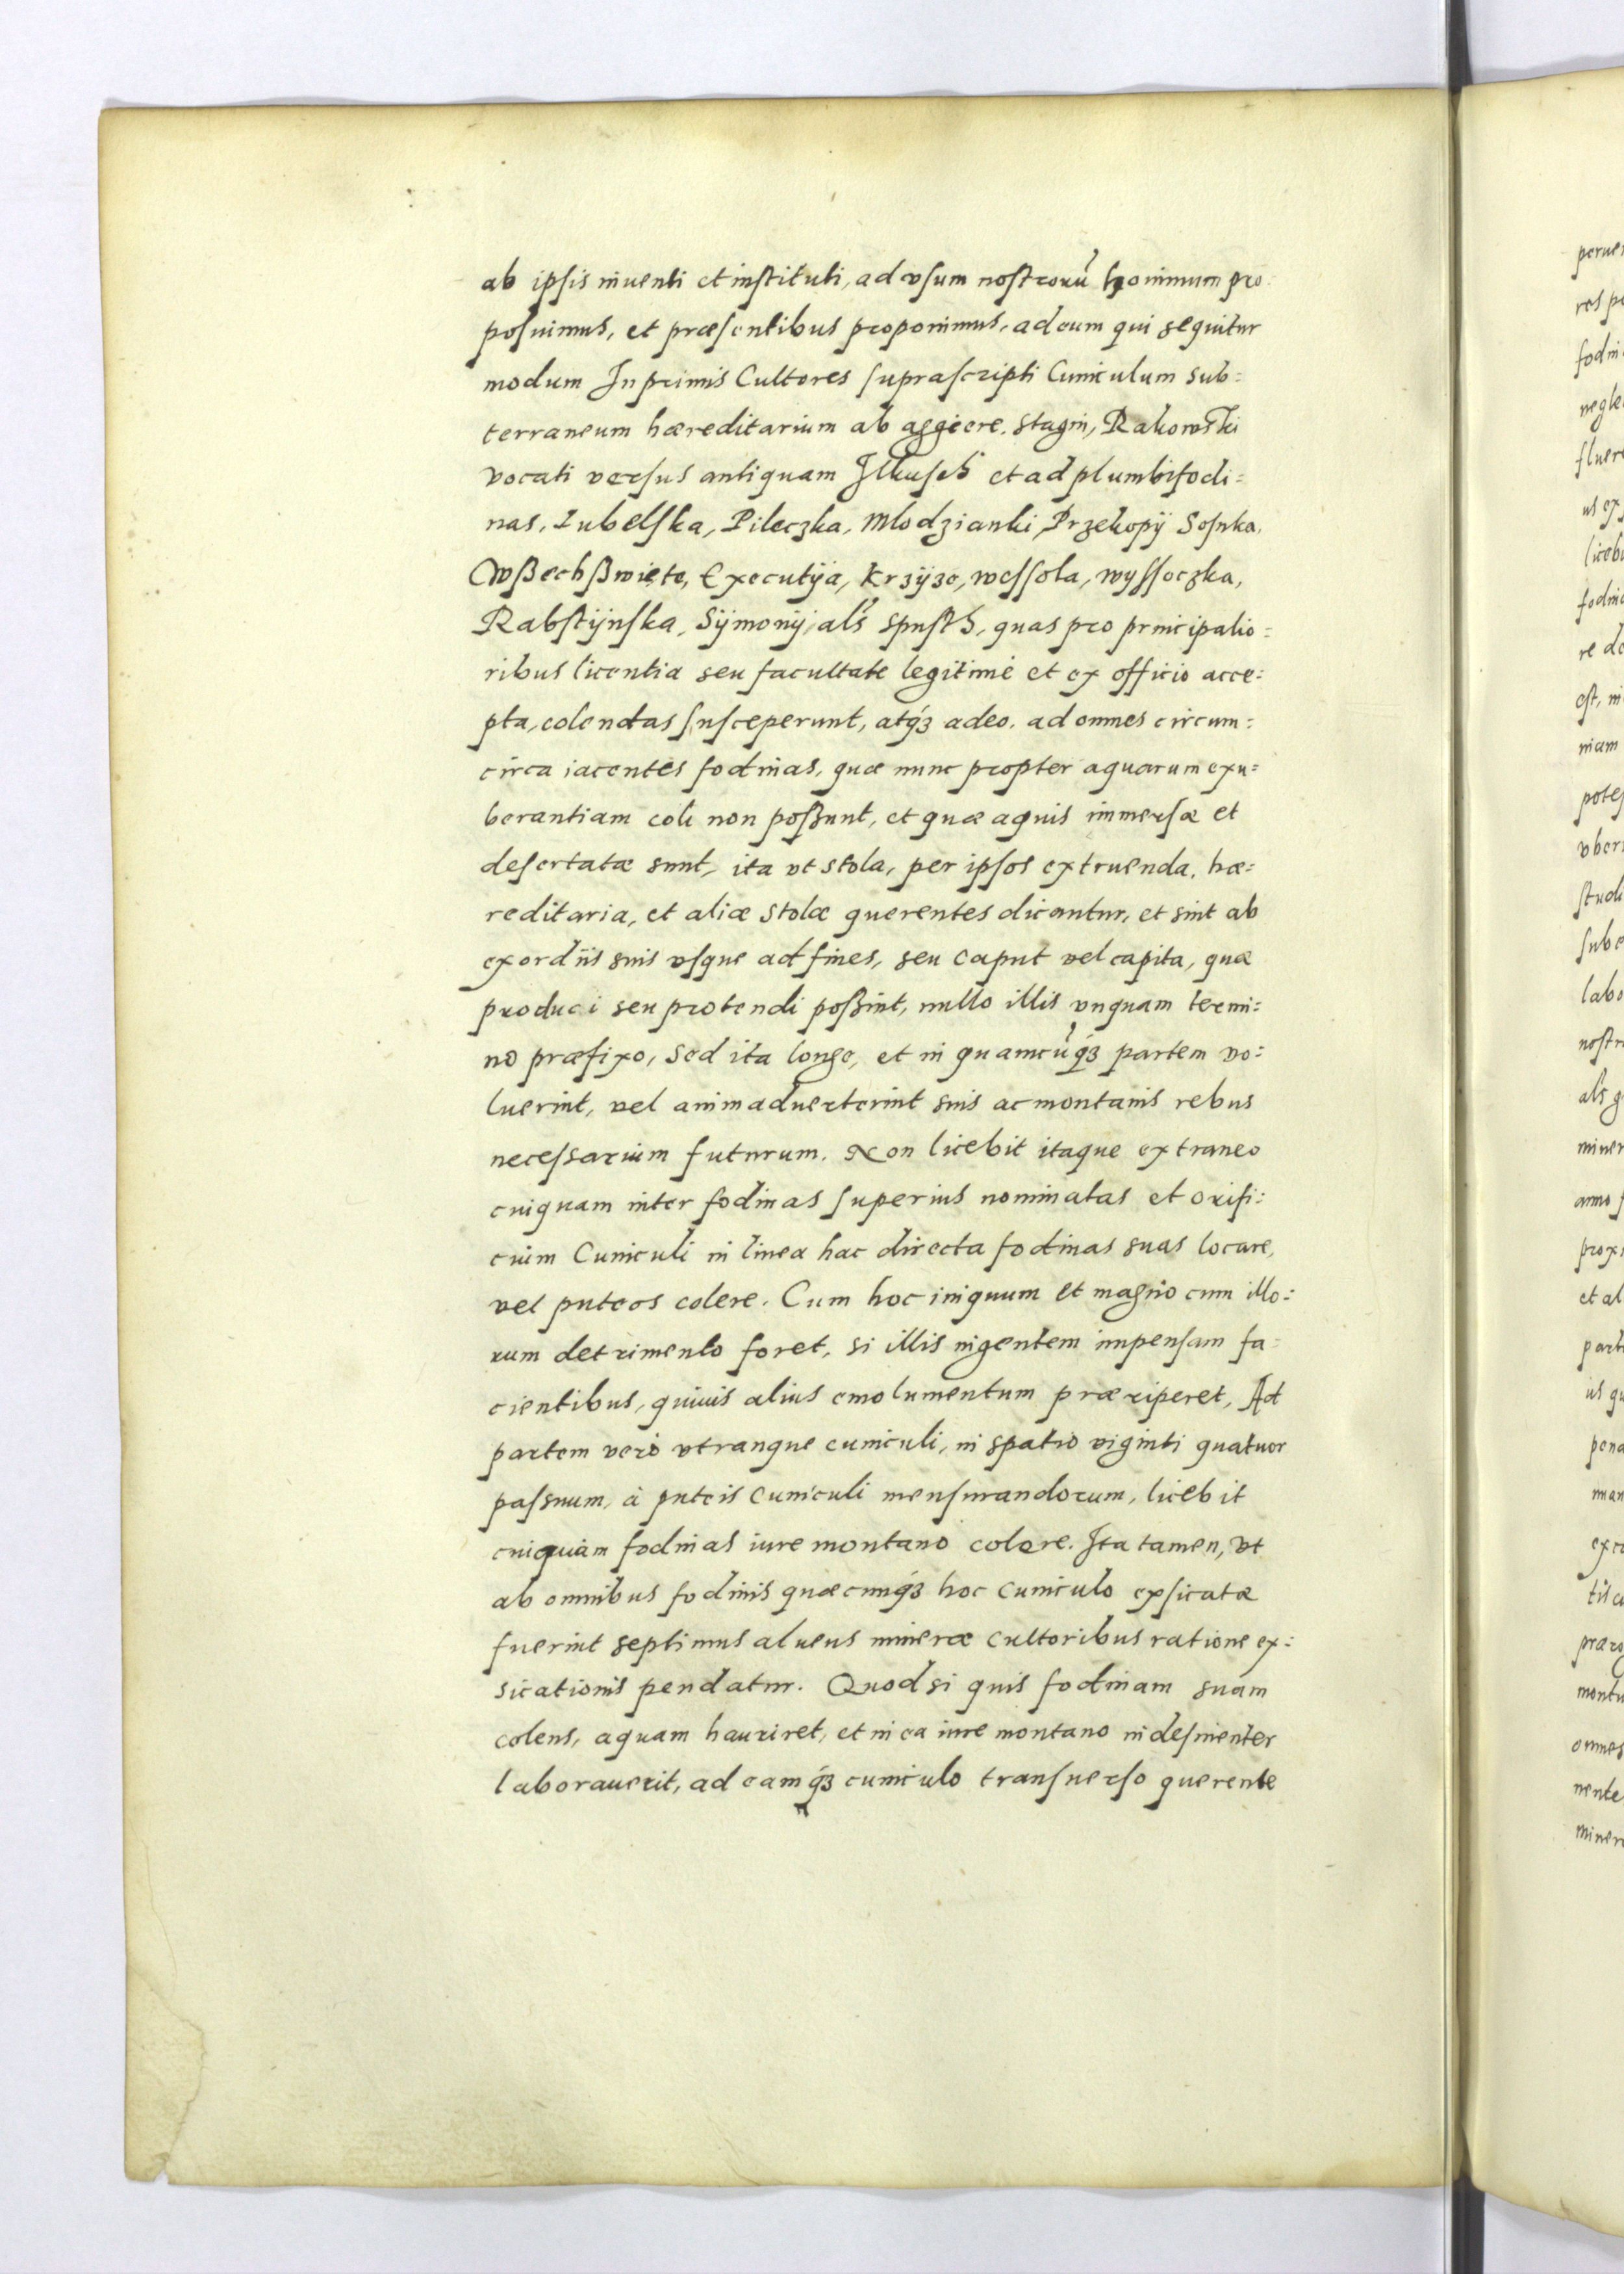 ab ipsis inuenti et instituti, ad vsum nostrorũ hominum pro
posuimus, et præsentibus proponimus, ad eum qui sequitur
modum Inprimis Cultores suprascripti Cuniculum sub=
terraneum hæreditarium ab aggere, stagni, Rakowski
vocati versus antiquam Ilkusch et ad plumbifodi=
nas, Lubelska, Pileczka, Mlodzianki, Przekopÿ Sosnka,
Wßechßwiete, Executÿa, Krzÿze, wessola, wyssoczka,
Rabstÿnska, Sÿmonÿ, als Spusth, quas pro principalio=
ribus licentia seu facultate legitimè et ex officio acce=
pta, colendas susceperunt, atq́ꝫ adeo, ad omnes circum=
circa iacentes fodinas, quæ nunc propter aquarum exu=
berantiam coli non poßunt, et quæ aquis immersæ et
desertatæ sunt, ita vt stola, per ipsos extruenda, hæ=
reditaria, et aliæ stolæ querentes dicantur, et sint ab
exordiis suis vsque ad fines, seu caput vel capita, quæ
produci seu protendi poßint, nullo illis vnquam termi=
no præfixo, Sed ita longe, et in quamcũq́ꝫ partem vo=
luerint, vel animaduerterint suis ac montanis rebus
necessarium futurum. Non licebit itaque extraneo
cuiquam inter fodinas superius nominatas et orifi=
cium Cuniculi in linea hac directa fodinas suas locare,
vel puteos colere. Cum hoc iniquum et magno cum illo=
rum detrimento foret, si illis ingentem impensam fa=
cientibus, quiuis alius emolumentum præriperet, Ad
partem verò vtranque cuniculi, in spatio viginti quatuor
passuum, à puteis Cuniculi mensurandorum, licebit
cuiquam fodinas iure montano colere. Ita tamen, vt
ab omnibus fodinis quæcunq́ꝫ hoc cuniculo exsicatæ
fuerint septimus alueus mineræ cultoribus ratione ex=
sicationis pendatur. Quod si quis fodinam suam
colens, aquam hauriret, et in ea iure montano indesinenter
laborauerit, ad eamq́ꝫ cuniculo transuerso querente